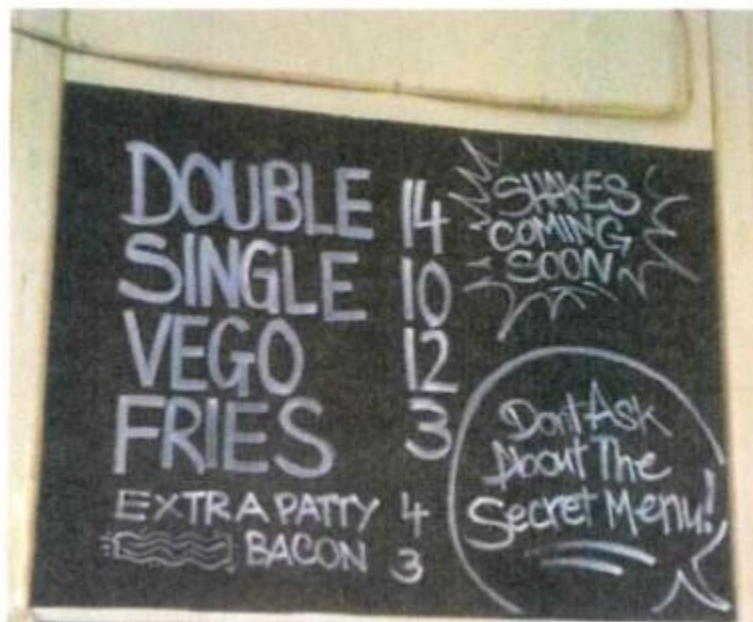 DOUBLE 14
SINGLE 10
VEGO 12
FRIES 3
EXTRA PATTY 4
BACON 3
SHAKES
COMING
SOON
Dont Ask
About The
Secret Menu!